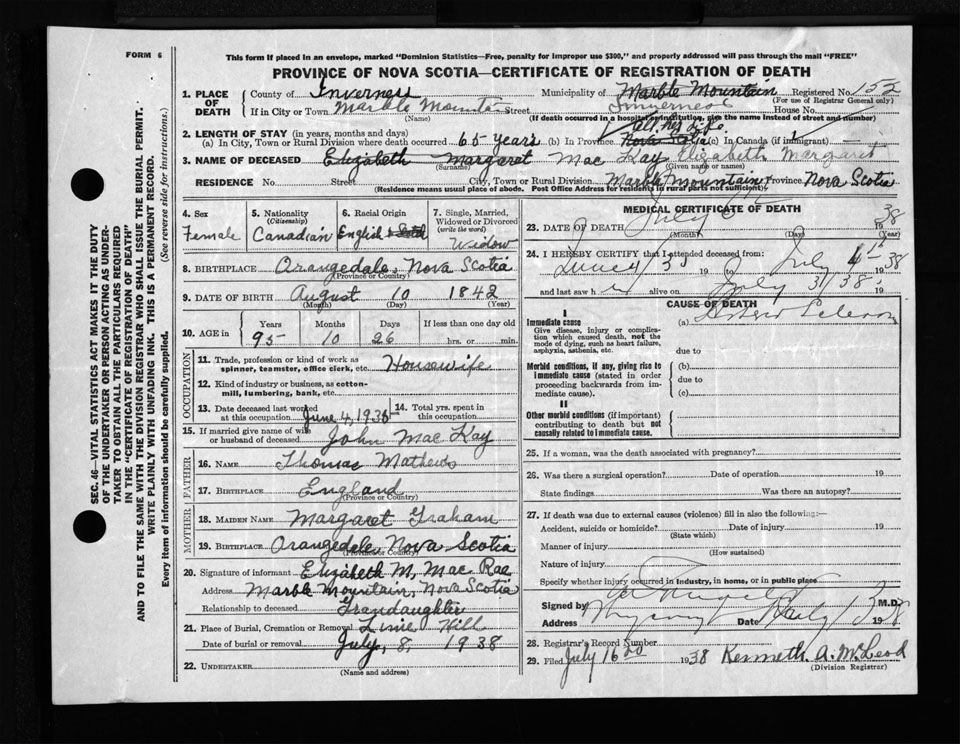 FORM 6
This form if placed in an envelope, marked "Dominion Statistics—Free, penalty for improper use $300," and properly addressed will pass through the mail "FREE"
PROVINCE OF NOVA SCOTIA—CERTIFICATE OF REGISTRATION OF DEATH
SEC. 46—VITAL STATISTICS ACT MAKES IT THE DUTY
OF THE UNDERTAKER OR PERSON ACTING AS UNDER-
TAKER TO OBTAIN ALL THE PARTICULARS REQUIRED
IN THE "CERTIFICATE OF REGISTRATION OF DEATH"
AND TO FILE THE SAME WITH THE DIVISION REGISTRAR WHO SHALL ISSUE THE BURIAL PERMIT.
WRITE PLAINLY WITH UNFADING INK. THIS IS A PERMANENT RECORD.
Every item of information should be carefully supplied. (See reverse side for instructions.)
1. PLACE OF DEATH
County of Inverness Municipality of Marble Mountain Registered No. 152
Inverness (For use of Registrar General only)
If in City or Town Marble Mountain Street House No.
(Name) (If death occurred in a hospital or institution, give the name instead of street and number)
All her life.
2. LENGTH OF STAY (in years, months and days)
(a) In City, Town or Rural Division where death occurred 65 years (b) In Province Nova Scotia (c) In Canada (if immigrant)
3. NAME OF DECEASED Elizabeth Margaret Mac Kay Elizabeth Margaret
(Surname) (Given name or names)
RESIDENCE No. Street City, Town or Rural Division Marble Mountain Province Nova Scotia
(Residence means usual place of abode. Post Office Address for residents in rural parts not sufficient)
4. Sex
Female
5. Nationality
(Citizenship)
Canadian
6. Racial Origin
English
7. Single, Married, Widowed or Divorced
(write the word)
Widow
8. BIRTHPLACE Orangedale, Nova Scotia
(Province or Country)
9. DATE OF BIRTH August 10 1842
(Month) (Day) (Year)
10. AGE in Years Months Days If less than one day old
95 10 26 hrs. or min.
OCCUPATION
11. Trade, profession or kind of work as
spinner, teamster, office clerk, etc. Housewife
12. Kind of industry or business, as cotton-
mill, lumbering, bank, etc.
13. Date deceased last worked
at this occupation June 4, 1936
14. Total yrs. spent in
this occupation
15. If married give name of wife
or husband of deceased John Mac Kay
FATHER
16. NAME Thomas Mathews
17. BIRTHPLACE England
(Province or Country)
MOTHER
18. MAIDEN NAME Margaret Graham
19. BIRTHPLACE Orangedale, Nova Scotia
(Province or Country)
20. Signature of informant Elizabeth M. Mac Rae
Address Marble Mountain, Nova Scotia
Relationship to deceased Grandaughter
21. Place of Burial, Cremation or Removal Lime Hill
Date of burial or removal July, 8, 1938
22. UNDERTAKER
(Name and address)
MEDICAL CERTIFICATE OF DEATH
23. DATE OF DEATH July 38
(Month) (Day) (Year)
24. I HEREBY CERTIFY that I attended deceased from:
19 to July 4th 1938
and last saw her alive on July 3/38 19
CAUSE OF DEATH
I
Immediate cause
Give disease, injury or complica-
tion which caused death, not the
mode of dying, such as heart failure,
asphyxia, asthenia, etc.
(a)
due to
Morbid conditions, if any, giving rise to
immediate cause (stated in order
proceeding backwards from im-
mediate cause).
(b)
due to
(c)
II
Other morbid conditions (if important)
contributing to death but not
causally related to immediate cause.
25. If a woman, was the death associated with pregnancy?
26. Was there a surgical operation? Date of operation 19
State findings Was there an autopsy?
27. If death was due to external causes (violence) fill in also the following:—
Accident, suicide or homicide? Date of injury 19
(State which)
Manner of injury
(How sustained)
Nature of injury
Specify whether injury occurred in industry, in home, or in public place
Signed by M.D.
Address Date July 13 1938
28. Registrar's Record Number
29. Filed July 16 1938 Kenneth. A. McLeod
(Division Registrar)